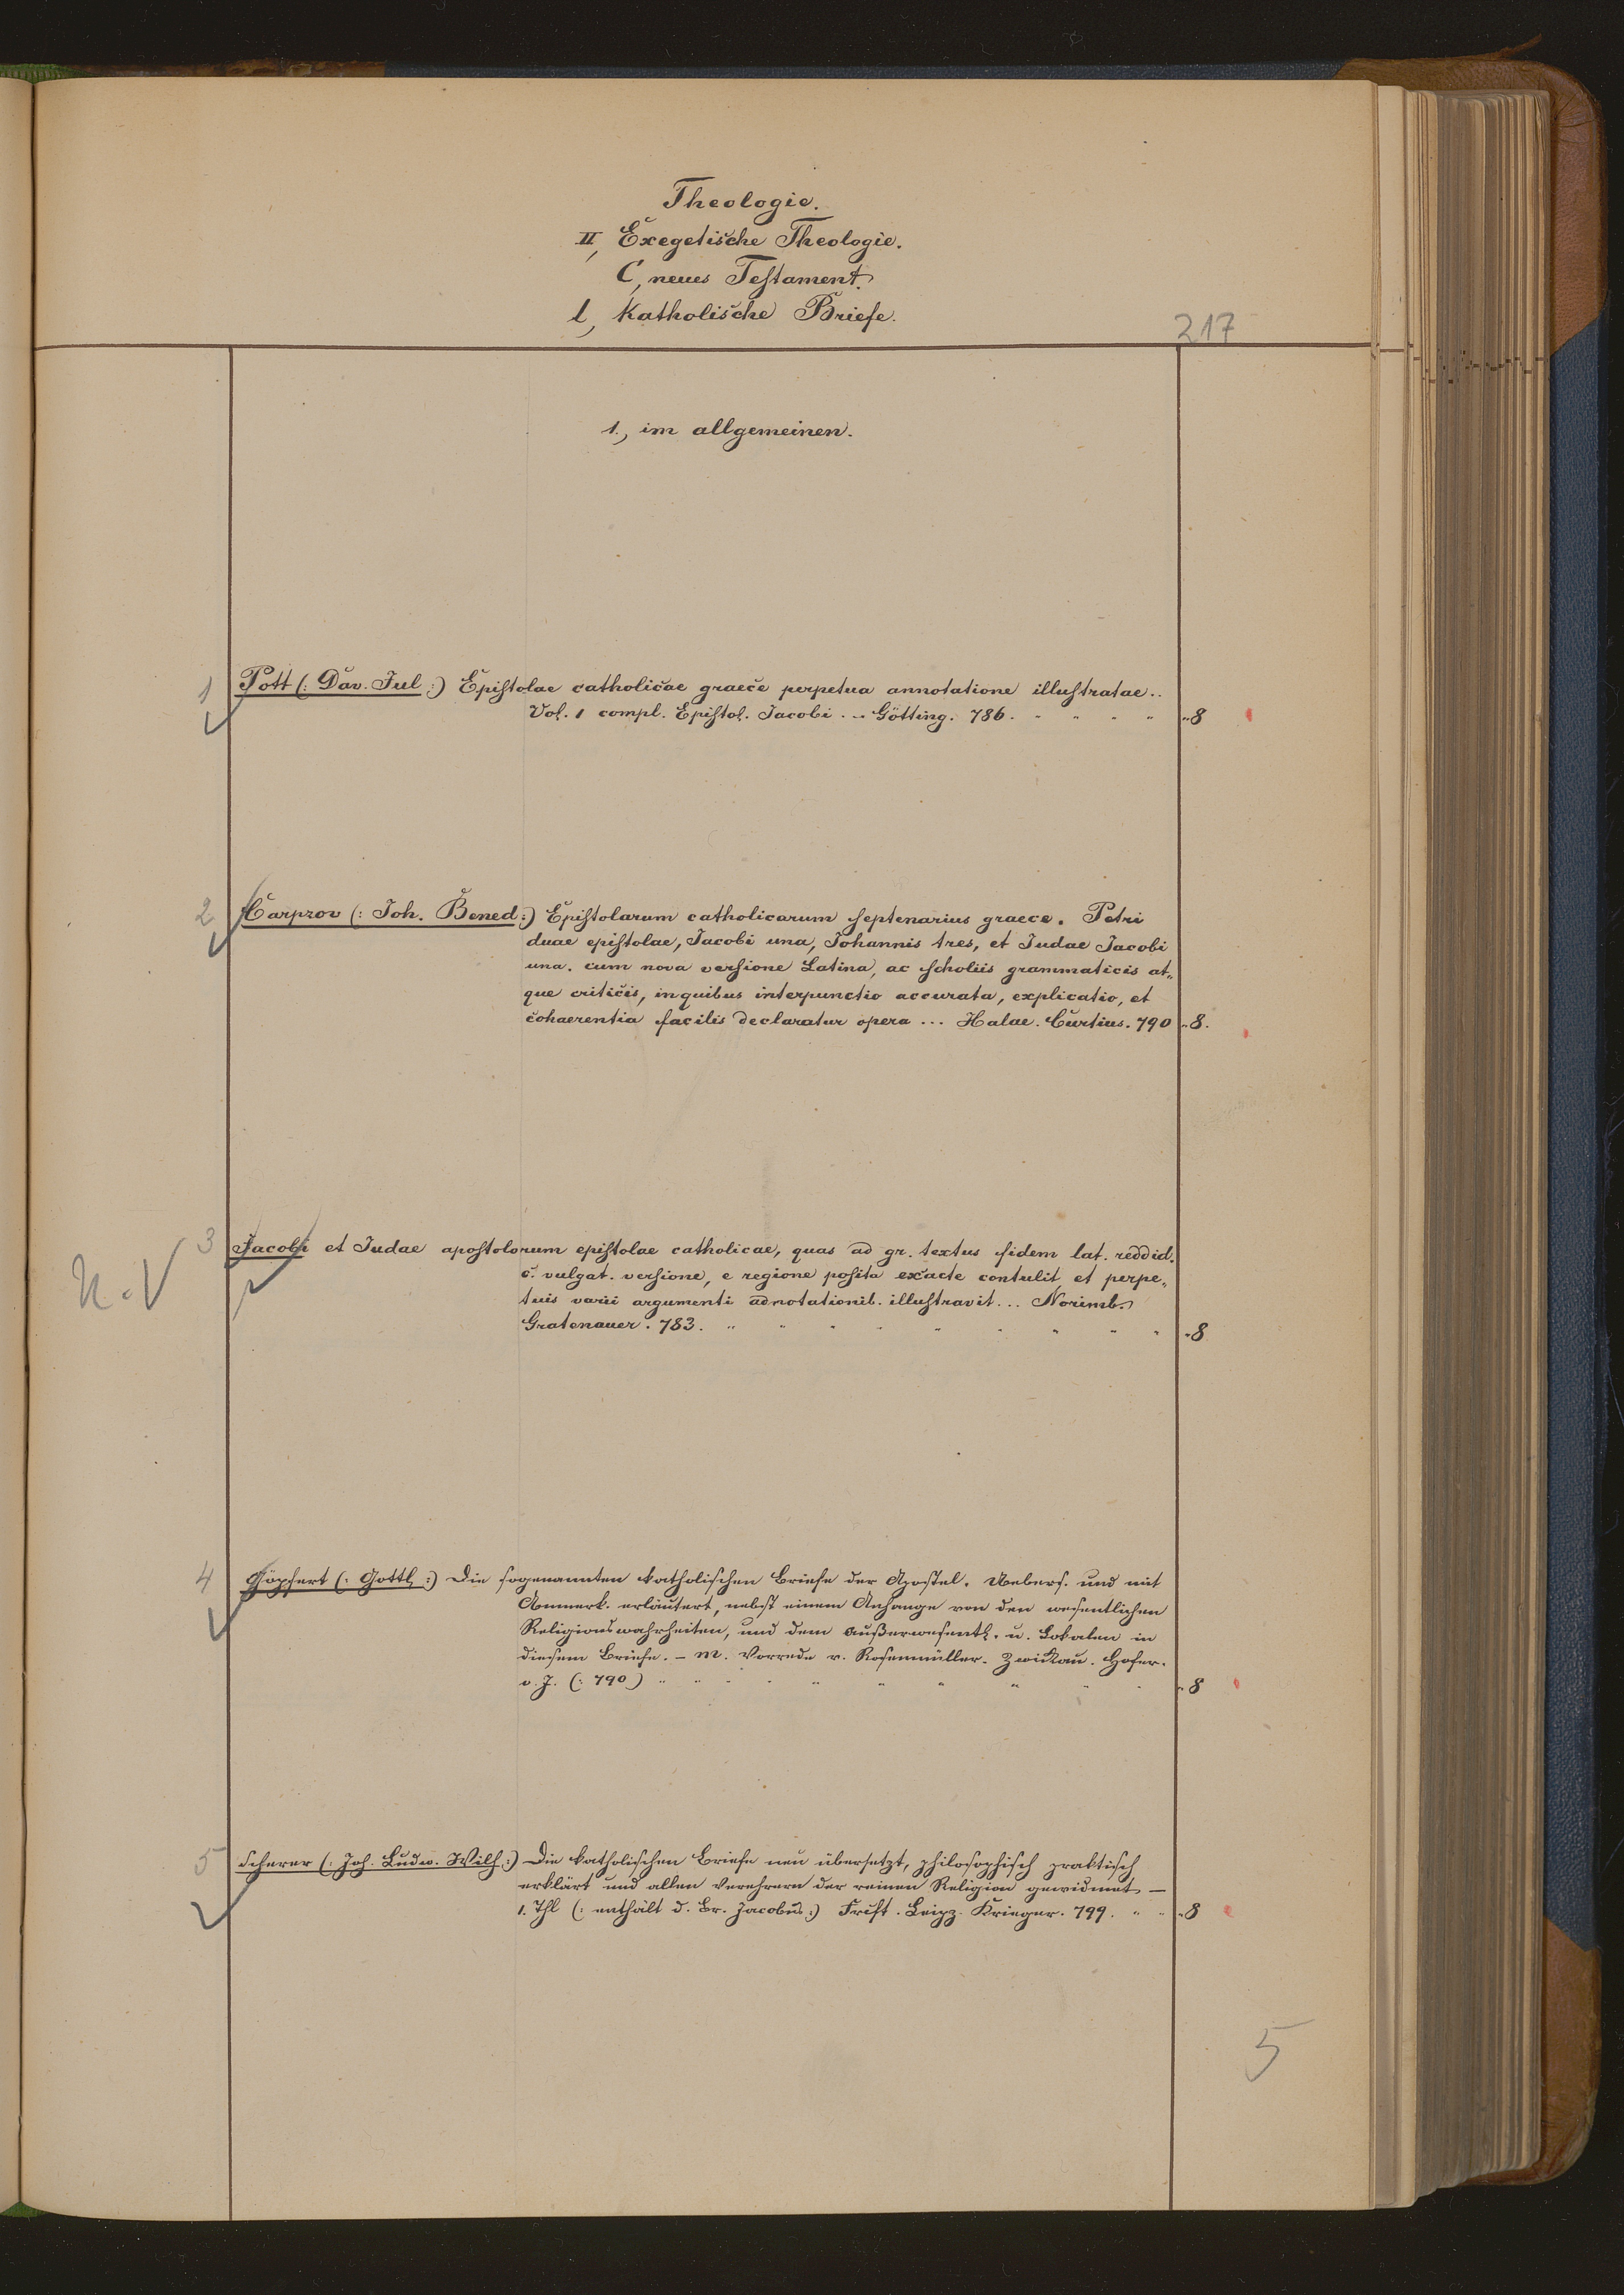 Theologie.
II, Exegetische Theologie.
C, neues Testament.
l, Katholische Briefe.
217
1., im allgemeinen.
1 Pott (: Dav. Jul :) Epistolae catholicae graece perpetua annotatione illustratae..
Vol. 1 compl. Epistol. Jacobi ... Götting. 786. " " " " "8
2 Carpzov (: Joh. Bened :) Epistolarum catholicarum septenarius graece. Petri
duae epistolae, Jacobi una, Johannis tres, et Judae Jacobi
una. cum nova versione Latina, ac scholiis grammaticis at„
que criticis, in quibus interpunctio accurata, explicatio, et
cohaerentia facilis declaratur opera ... Halae. Curtius. 790 "8.
3 Jacobi et Judae apostolorum epistolae catholicae, quas ad gr. textus fidem lat. reddid.
c. vulgat. versione, e regione posita exacte contulit, et perpe„
tuis varii argumenti adnotationib. illustravit... Norimb.
Gratenauer. 783. " " " " " " " " " "8
4 Göpfert (: Gottl :) Die sogenannten katholischen Briefe der Apostel. Uebers. und mit
Anmerk. erläutert, nebst einem Anhange von den wesentlichen
Religionswahrheiten, und dem außerwesentl. u. Lokalen in
diesem Briefe. – m. Vorrede v. Rosenmüller. Zwickau. Hofer.
o. J. (: 790) " " " " " " " " " "8
5 Scherer (: Joh. Ludw. Wilh :) Die katholischen Briefe neu übersetzt, philosophisch praktisch
erklärt und allen Verehrern der reinen Religion gewidmet –
1. Thl (: enthält d. Br. Jacobus :) Frkft. Leipz. Krieger. 799. " " "8
5